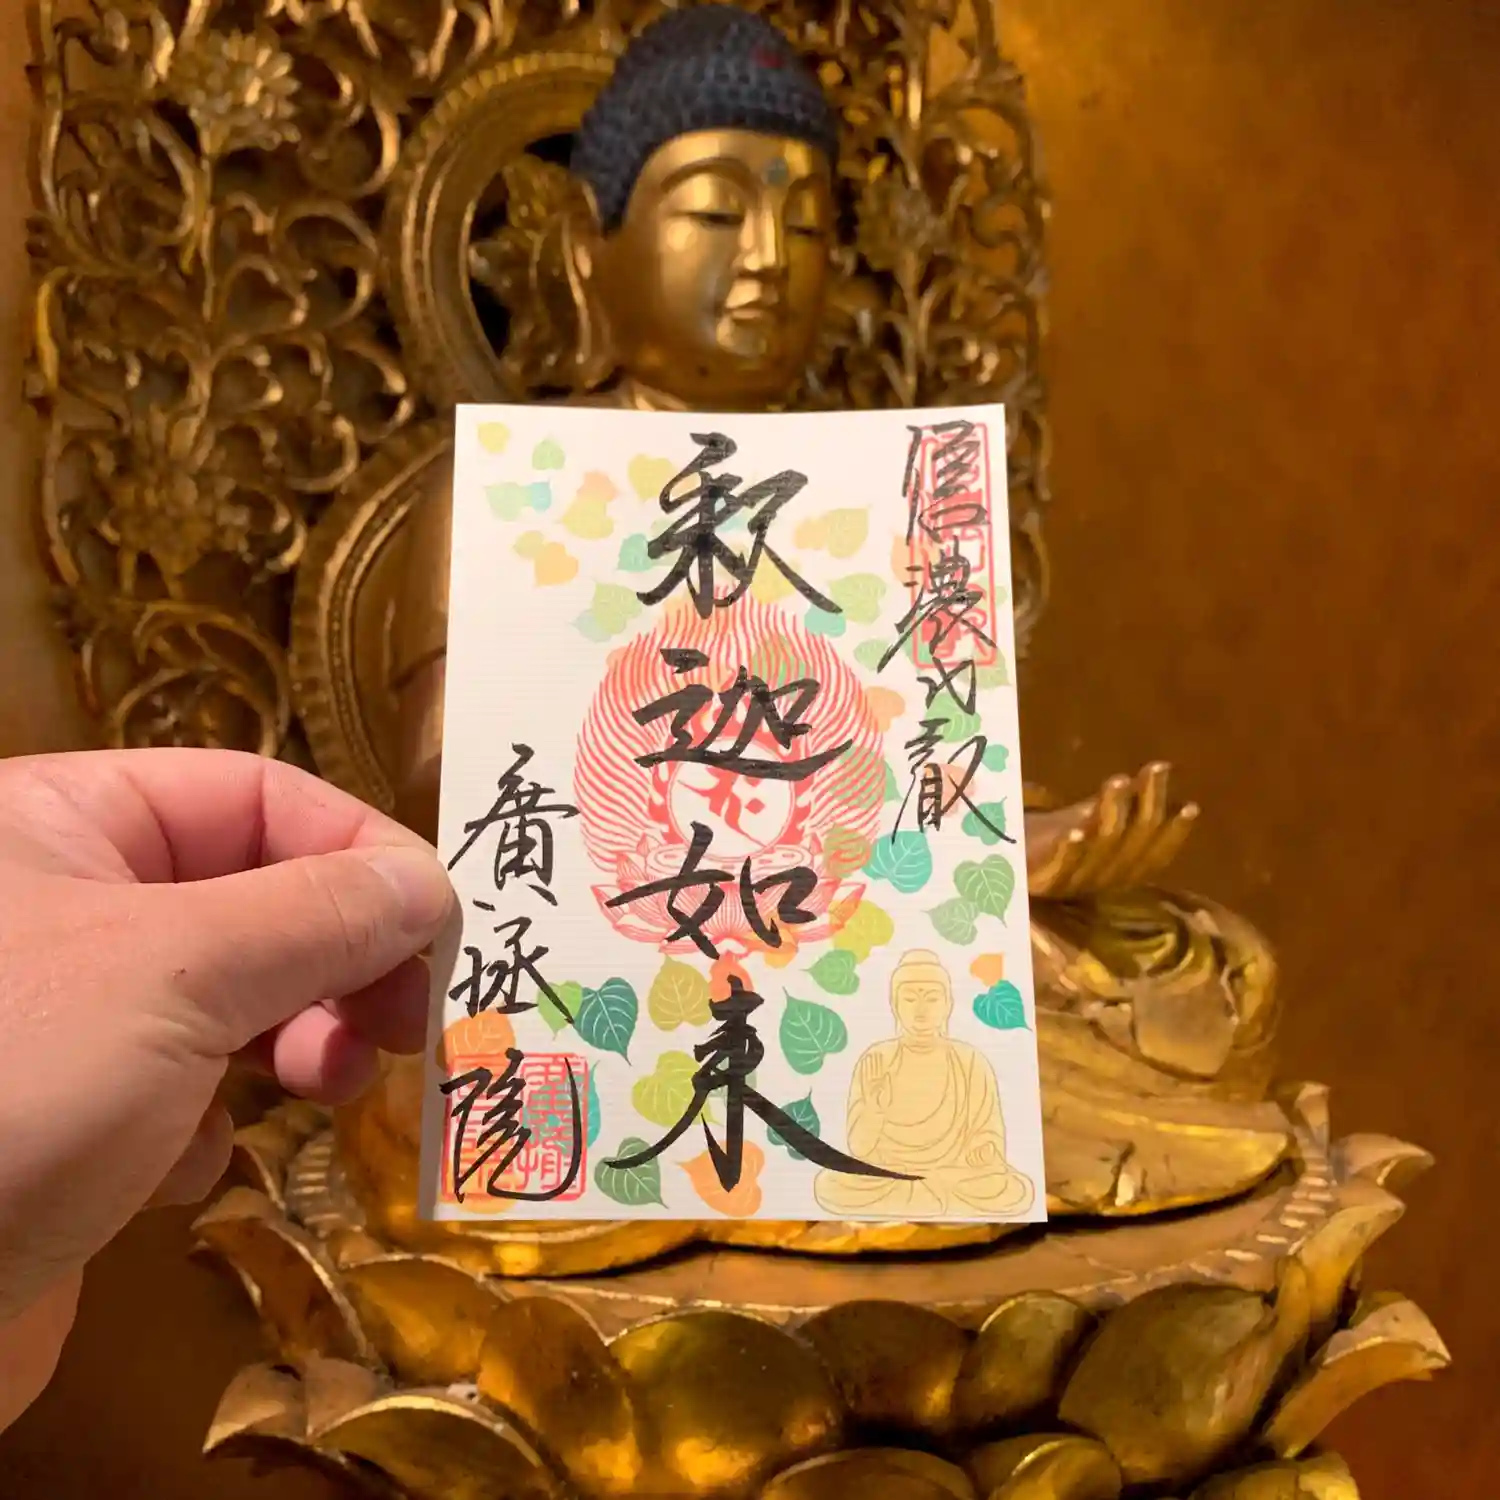 信濃比叡
釈迦如来
廣拯院